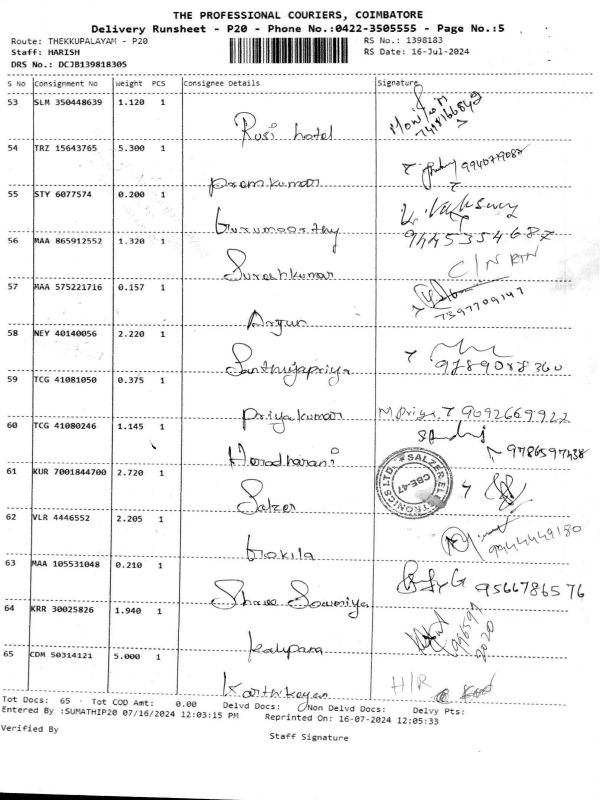 THE PROFESSIONAL COURIERS, COIMBATORE
Delivery Runsheet - P20 - Phone No.:0422-3505555 - Page No.:5
Route: THEKKUPALAYAM - P20 RS No.: 1398183
Staff: HARISH RS Date: 16-Jul-2024
DRS No.: DCJB139818305
S No Consignment No Weight PCS Consignee Details Signature
53 SLM 350448639 1.120 1
Rusi hotel
54 TRZ 15643765 5.300 1
premkumar
55 STY 6077574 0.200 1
Gurumoorthy 9445354687
56 MAA 865912552 1.320 1
Sureshkumar
57 MAA 575221716 0.157 1
Arjun 7397709147
58 NEY 40140056 2.220 1
Santhiyapriya
59 TCG 41081050 0.375 1
Priyakumar M.Priya. T 9092669922
60 TCG 41080246 1.145 1
9786597438
61 KUR 7001844700 2.720 1
Salzer SALZER ELECTRONICS LTD. CBE-47
62 VLR 4446552 2.205 1
Gokila 9944449180
63 MAA 105531048 0.210 1
Shree Sowmiya 9566786576
64 KRR 30025826 1.940 1
65 CDM 50314121 5.000 1
Karthikeyan H/R
Tot Docs: 65 - Tot COD Amt: 0.00 Delvd Docs: Non Delvd Docs: Delvy Pts:
Entered By :SUMATHIP20 07/16/2024 12:03:15 PM Reprinted On: 16-07-2024 12:05:33
Verified By Staff Signature